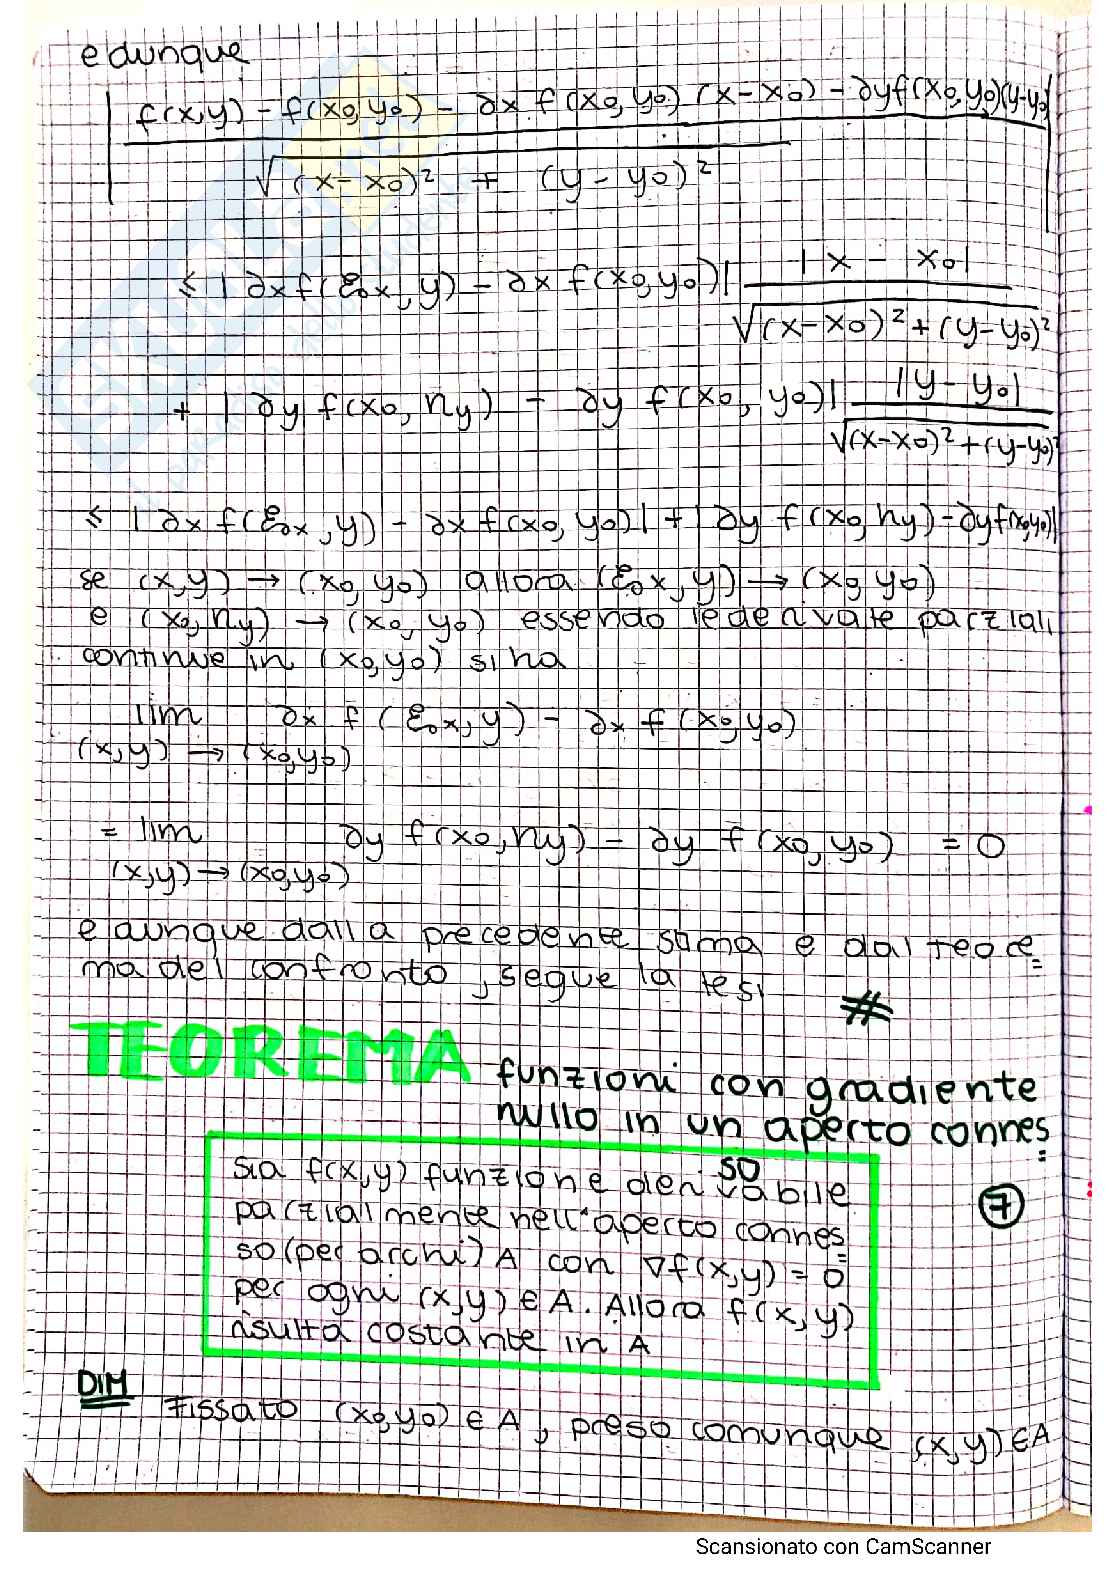 e dunque
| f(x,y) - f(x0,y0) - ∂x f(x0,y0) (x-x0) - ∂y f(x0,y0)(y-y0) |
√(x-x0)² + (y-y0)²
≤ | ∂x f(ξx, y) - ∂x f(x0,y0)| |x - x0|
√(x-x0)² + (y-y0)²
+ | ∂y f(x0, ηy) - ∂y f(x0, y0)| |y - y0|
√(x-x0)² + (y-y0)²
≤ | ∂x f(ξx, y) - ∂x f(x0, y0)| + | ∂y f(x0, ηy) - ∂y f(x0,y0)|
se (x,y) → (x0,y0) allora (ξx, y) → (x0,y0)
e (x0, ηy) → (x0, y0) essendo le derivate parziali
continue in (x0,y0) si ha
lim ∂x f (ξx, y) - ∂x f (x0,y0)
(x,y) → (x0,y0)
= lim ∂y f(x0, ηy) - ∂y f(x0, y0) = 0
(x,y) → (x0,y0)
e dunque dalla precedente stima e dal teore=
ma del confronto, segue la tesi
#
TEOREMA funzioni con gradiente
nullo in un aperto connes=
so
sia f(x,y) funzione derivabile
parzialmente nell'aperto connes=
so (per archi) A con ∇f(x,y) = 0
per ogni (x,y) ∈ A. Allora f(x,y)
risulta costante in A
7
DIM Fissato (x0,y0) ∈ A, preso comunque (x,y) ∈ A
Scansionato con CamScanner